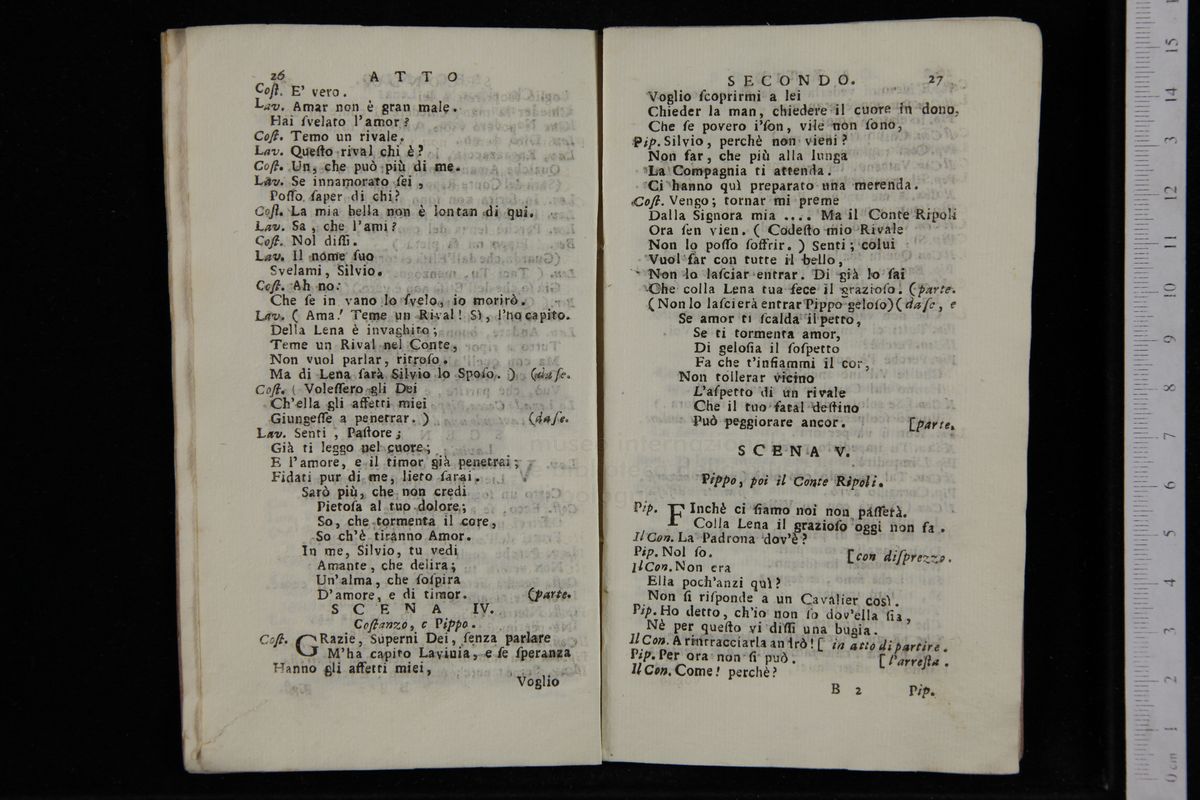 26 ATTO
Coſt. E' vero.
Lav. Amar non è gran male.
Hai ſvelato l'amor?
Coſt. Temo un rivale.
Lav. Queſto rival chi è?
Coſt. Un, che può più di me.
Lav. Se innamorato ſei,
Poſſo ſaper di chi?
Coſt. La mia bella non è lontan di qui.
Lav. Sa, che l'ami?
Coſt. Nol diſſi.
Lav. Il nome ſuo
Svelami, Silvio.
Coſt. Ah no:
Che ſe in vano lo ſvelo, io morirò.
Lav. ( Ama! Teme un Rival! Sì, l'ho capito.
Della Lena è invaghito;
Teme un Rival nel Conte,
Non vuol parlar, ritroſo.
Ma di Lena ſarà Silvio lo Spoſo. ) (da ſe.
Coſt. ( Voleſſero gli Dei
Ch'ella gli affetti miei
Giungeſſe a penetrar. ) (da ſe.
Lav. Senti, Paſtore;
Già ti leggo nel cuore;
E l'amore, e il timor già penetrai;
Fidati pur di me, lieto ſarai.
Sarò più, che non credi
Pietoſa al tuo dolore;
So, che tormenta il core,
So ch'è tiranno Amor.
In me, Silvio, tu vedi
Amante, che delira;
Un'alma, che ſoſpira
D'amore, e di timor. (parte.
SCENA IV.
Coſtanzo, e Pippo.
Coſt. GRazie, Superni Dei, ſenza parlare
M'ha capito Lavinia, e ſe ſperanza
Hanno gli affetti miei,
Voglio
SECONDO. 27
Voglio ſcoprirmi a lei
Chieder la man, chiedere il cuore in dono,
Che ſe povero i'ſon, vile non ſono,
Pip. Silvio, perchè non vieni?
Non far, che più alla lunga
La Compagnia ti attenda.
Ci hanno quì preparato una merenda.
Coſt. Vengo; tornar mi preme
Dalla Signora mia .... Ma il Conte Ripoli
Ora ſen vien. ( Codeſto mio Rivale
Non lo poſſo ſoffrir. ) Senti; colui
Vuol far con tutte il bello,
Non lo laſciar entrar. Di già lo ſai
Che colla Lena tua fece il grazioſo. (parte.
(Non lo laſcierà entrar Pippo geloſo)(da ſe, e
Se amor ti ſcalda il petto,
Se ti tormenta amor,
Di geloſia il ſoſpetto
Fa che t'infiammi il cor,
Non tollerar vicino
L'aſpetto di un rivale
Che il tuo fatal deſtino
Può peggiorare ancor. [parte.
SCENA V.
Pippo, poi il Conte Ripoli.
Pip. FInchè ci ſiamo noi non paſſerà.
Colla Lena il grazioſo oggi non fa.
Il Con. La Padrona dov'è?
Pip. Nol ſo. [con diſprezzo.
Il Con. Non era
Ella poch'anzi quì?
Non ſi riſponde a un Cavalier così.
Pip. Ho detto, ch'io non ſo dov'ella ſia,
Nè per queſto vi diſſi una bugia.
Il Con. A rintracciarla andrò! [ in atto di partire.
Pip. Per ora non ſi può. [ l'arreſta.
Il Con. Come! perchè?
B 2 Pip.